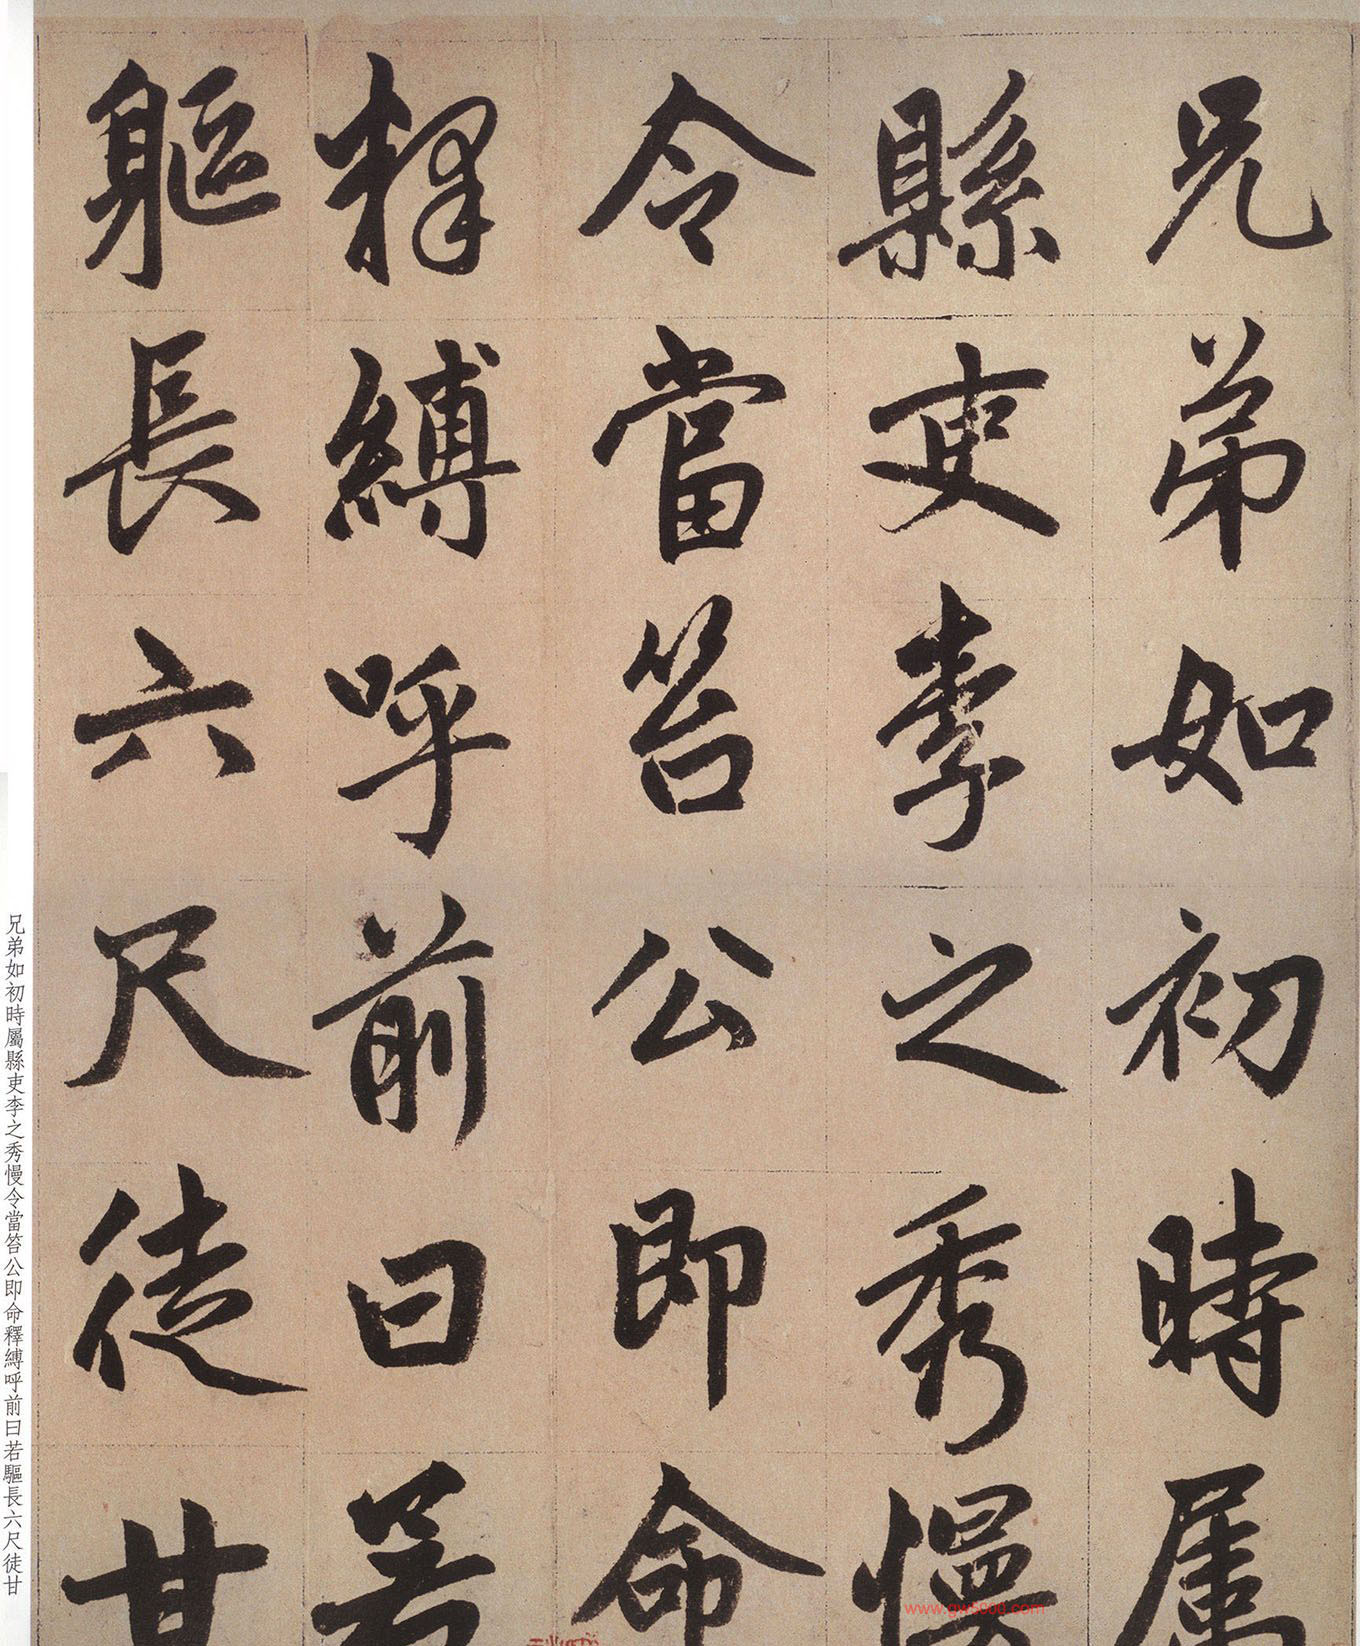 兄弟如初時属
縣吏李之秀慢
令當笞公即命
釋縛呼前曰若
軀長六尺徒甘
兄弟如初時屬縣吏李之秀慢令當笞公即命釋縛呼前曰若驅長六尺徒甘
www.gw5000.com